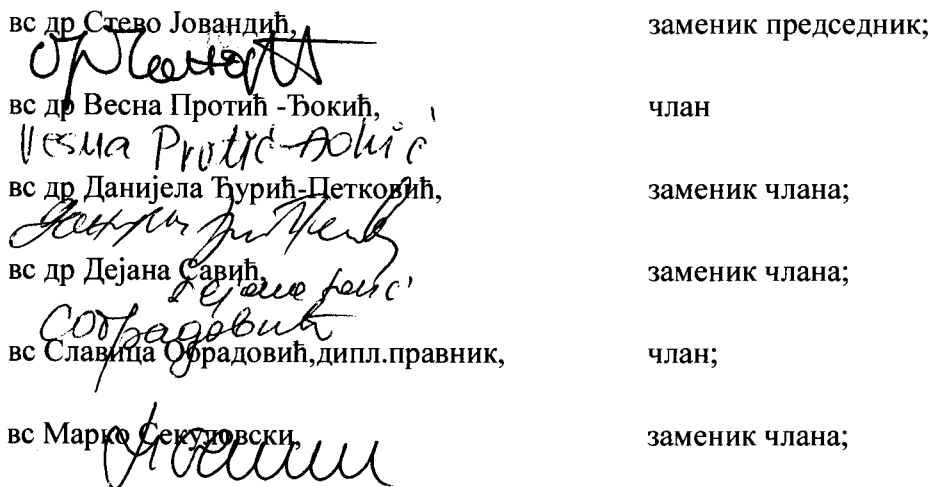 вс др Стево Јовандић, заменик председник;
вс др Весна Протић -Ђокић, члан
Vesna Protić-Đokić
вс др Данијела Ђурић-Петковић, заменик члана;
вс др Дејана Савић, заменик члана;
СОбрадовић
вс Славица Обрадовић,дипл.правник, члан;
вс Марко Секуловски, заменик члана;